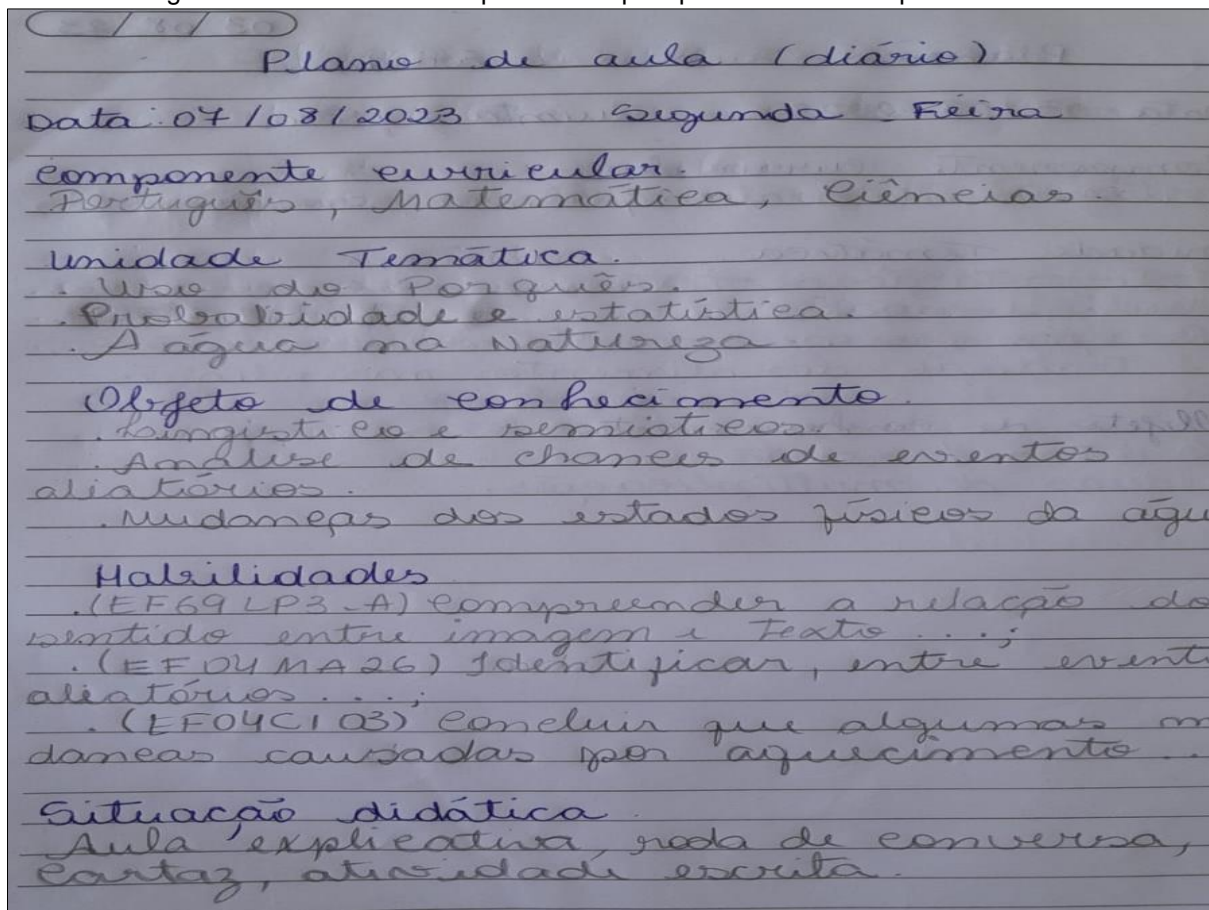 Plano de aula (diário)
Data: 07/08/2023 Segunda - Feira
componente curricular.
Português, Matemática, Ciências.
Unidade Temática.
. Uso do Porquês.
. Probabilidade e estatística.
. A água na Natureza
Objeto de conhecimento.
. Linguistico e semioticos.
. Análise de chances de eventos
aliatórios.
. Mudanças dos estados físicos da águ
Habilidades
. (EF69LP3-A) compreender a relação do
sentido entre imagem e texto ...;
. (EF04MA26) Identificar, entre event
aleatórios ...;
. (EF04CI03) concluir que algumas m
danças causadas por aquecimento ..
Situação didática.
Aula explicativa, roda de conversa,
cartaz, atividade escrita.